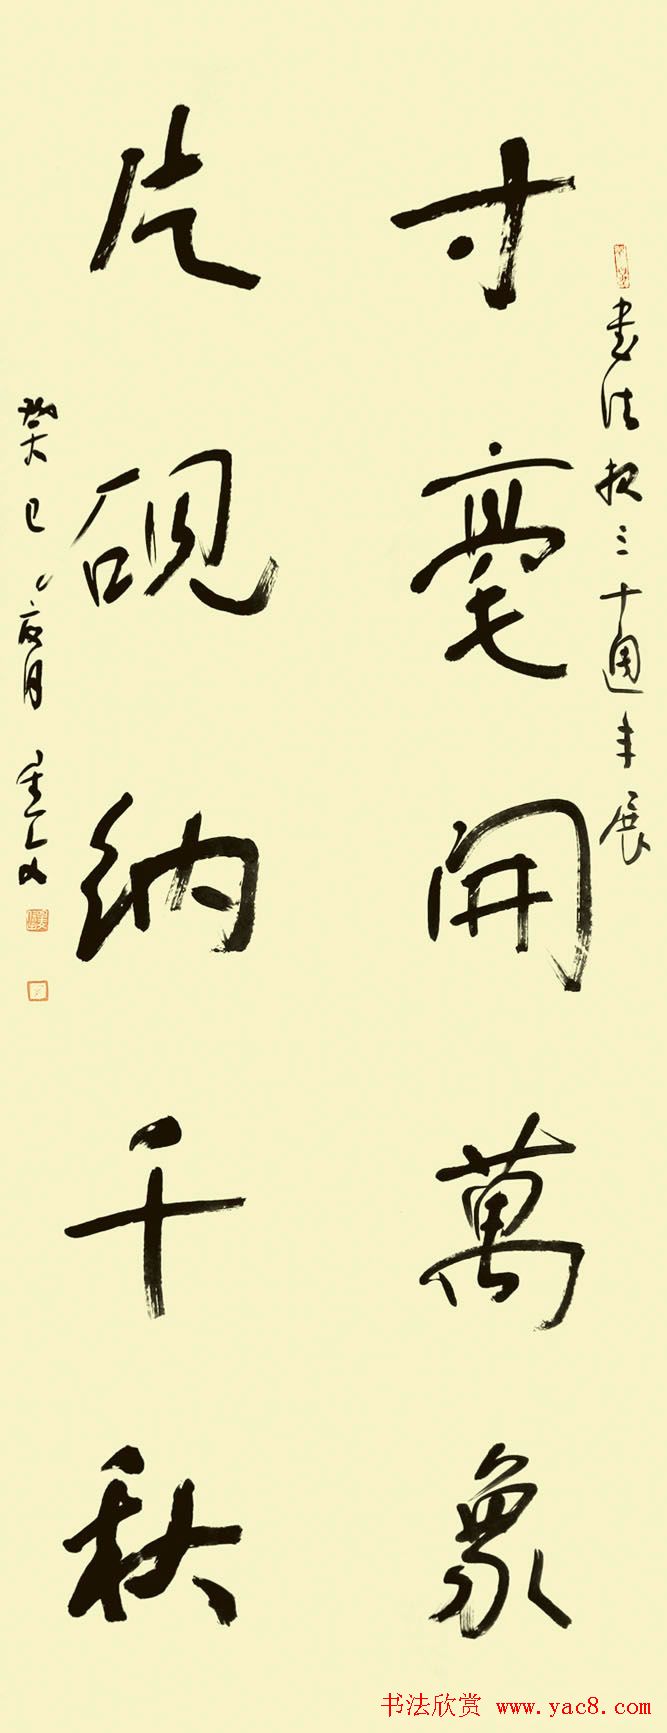 書法报三十週年展
寸毫開萬象
片硯納千秋
癸巳 月
书法欣赏 www.yac8.com